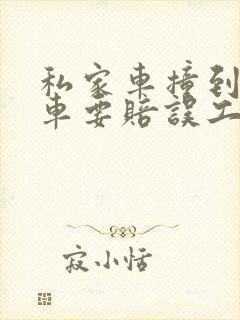 私家車撞到
車要賠誤工
寂小恬